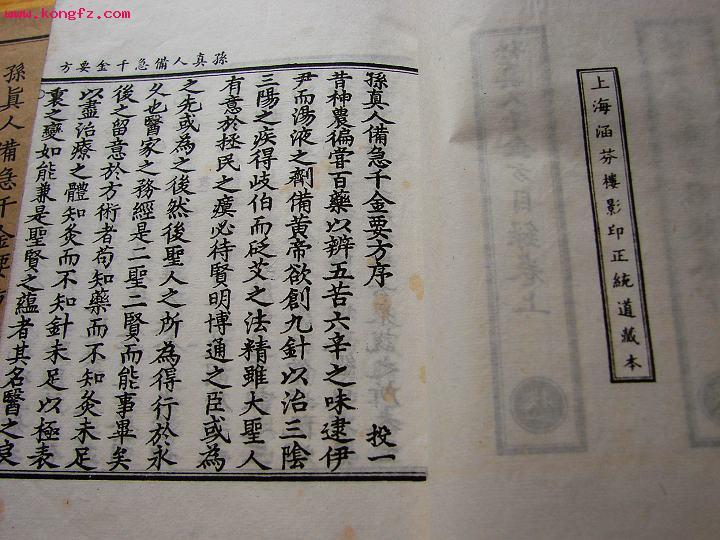 www.kongfz.com
上海涵芬樓影印正統道藏本
孫真人備急千金要方
孫真人備急千金要方序 投一
昔神農徧嘗百藥以辨五苦六辛之味逮伊
尹而湯液之劑備黃帝欲創九針以治三陰
三陽之疾得歧伯而砭艾之法精雖大聖人
有意於拯民之瘼必待賢明博通之臣或為
之先或為之後然後聖人之所為得行於永
久也醫家之務經是二聖二賢而能事畢矣
後之留意於方術者苟知藥而不知灸未足
以盡治療之體知灸而不知針未足以極表
裏之變如能兼是聖賢之蘊者其名醫之良
孫真人備急千金要
www.kongfz.com